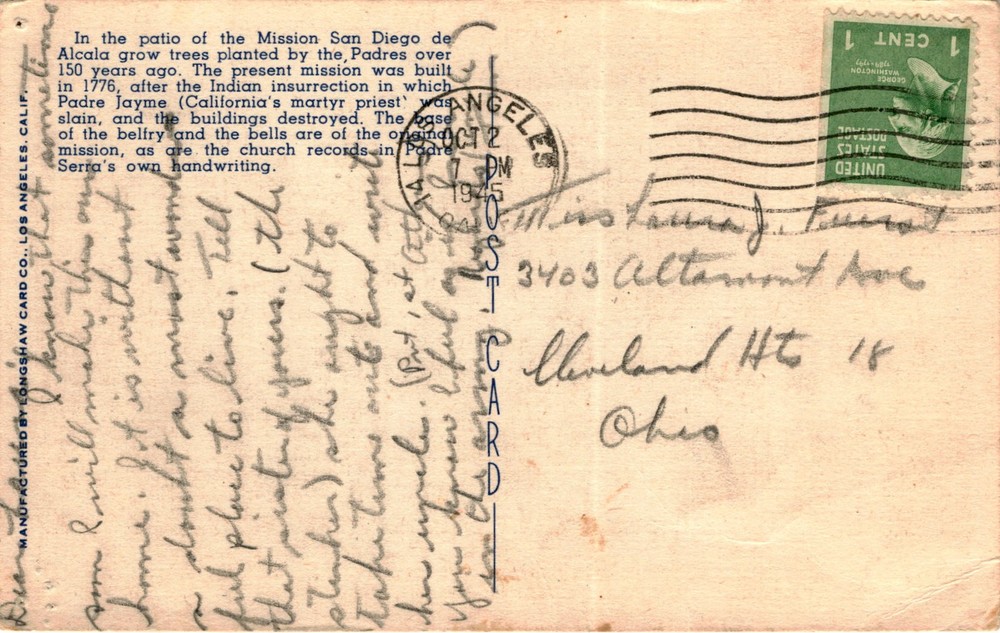 In the patio of the Mission San Diego de
Alcala grow trees planted by the Padres over
150 years ago. The present mission was built
in 1776, after the Indian insurrection in which
Padre Jayme (California's martyr priest) was
slain, and the buildings destroyed. The base
of the belfry and the bells are of the original
mission, as are the church records in Padre
Serra's own handwriting.
MANUFACTURED BY LONGSHAW CARD CO., LOS ANGELES, CALIF.
POST CARD
LOS ANGELES
14
OCT 2
7 PM
1945
CAL
UNITED
STATES
POSTAGE
GEORGE
WASHINGTON
1789-1797
1 CENT 1
Miss Laura J.
3403 Altamont Ave
Cleveland Hts 18
Ohio
Dear
I know that sometime
soon I will make this our
home. It is without
a doubt a most wonder
ful place to live. Tell
that sister of yours. (the
) she ought to
take time out and write
her uncle. (Pvt, at
you know I feel as tho I
in the army.